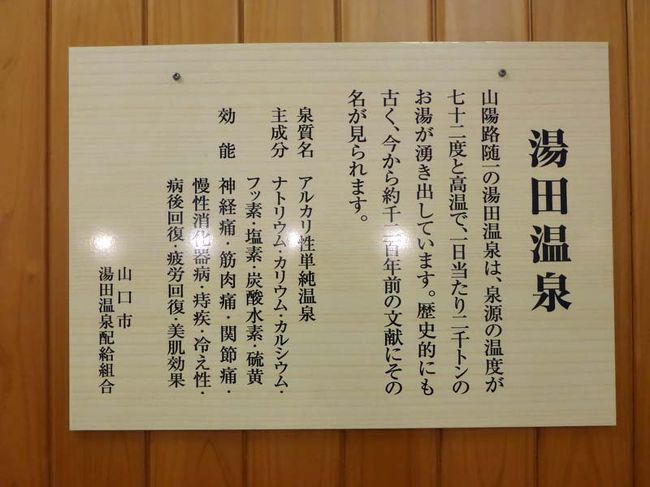 湯田温泉
山陽路随一の湯田温泉は、泉源の温度が
七十二度と高温で、一日当たり二千トンの
お湯が湧き出しています。歴史的にも
古く、今から約千二百年前の文献にその
名が見られます。
泉質名 アルカリ性単純温泉
主成分 ナトリウム・カリウム・カルシウム・
フッ素・塩素・炭酸水素・硫黄
効 能 神経痛・筋肉痛・関節痛・
慢性消化器病・痔疾・冷え性・
病後回復・疲労回復・美肌効果
山口市
湯田温泉配給組合